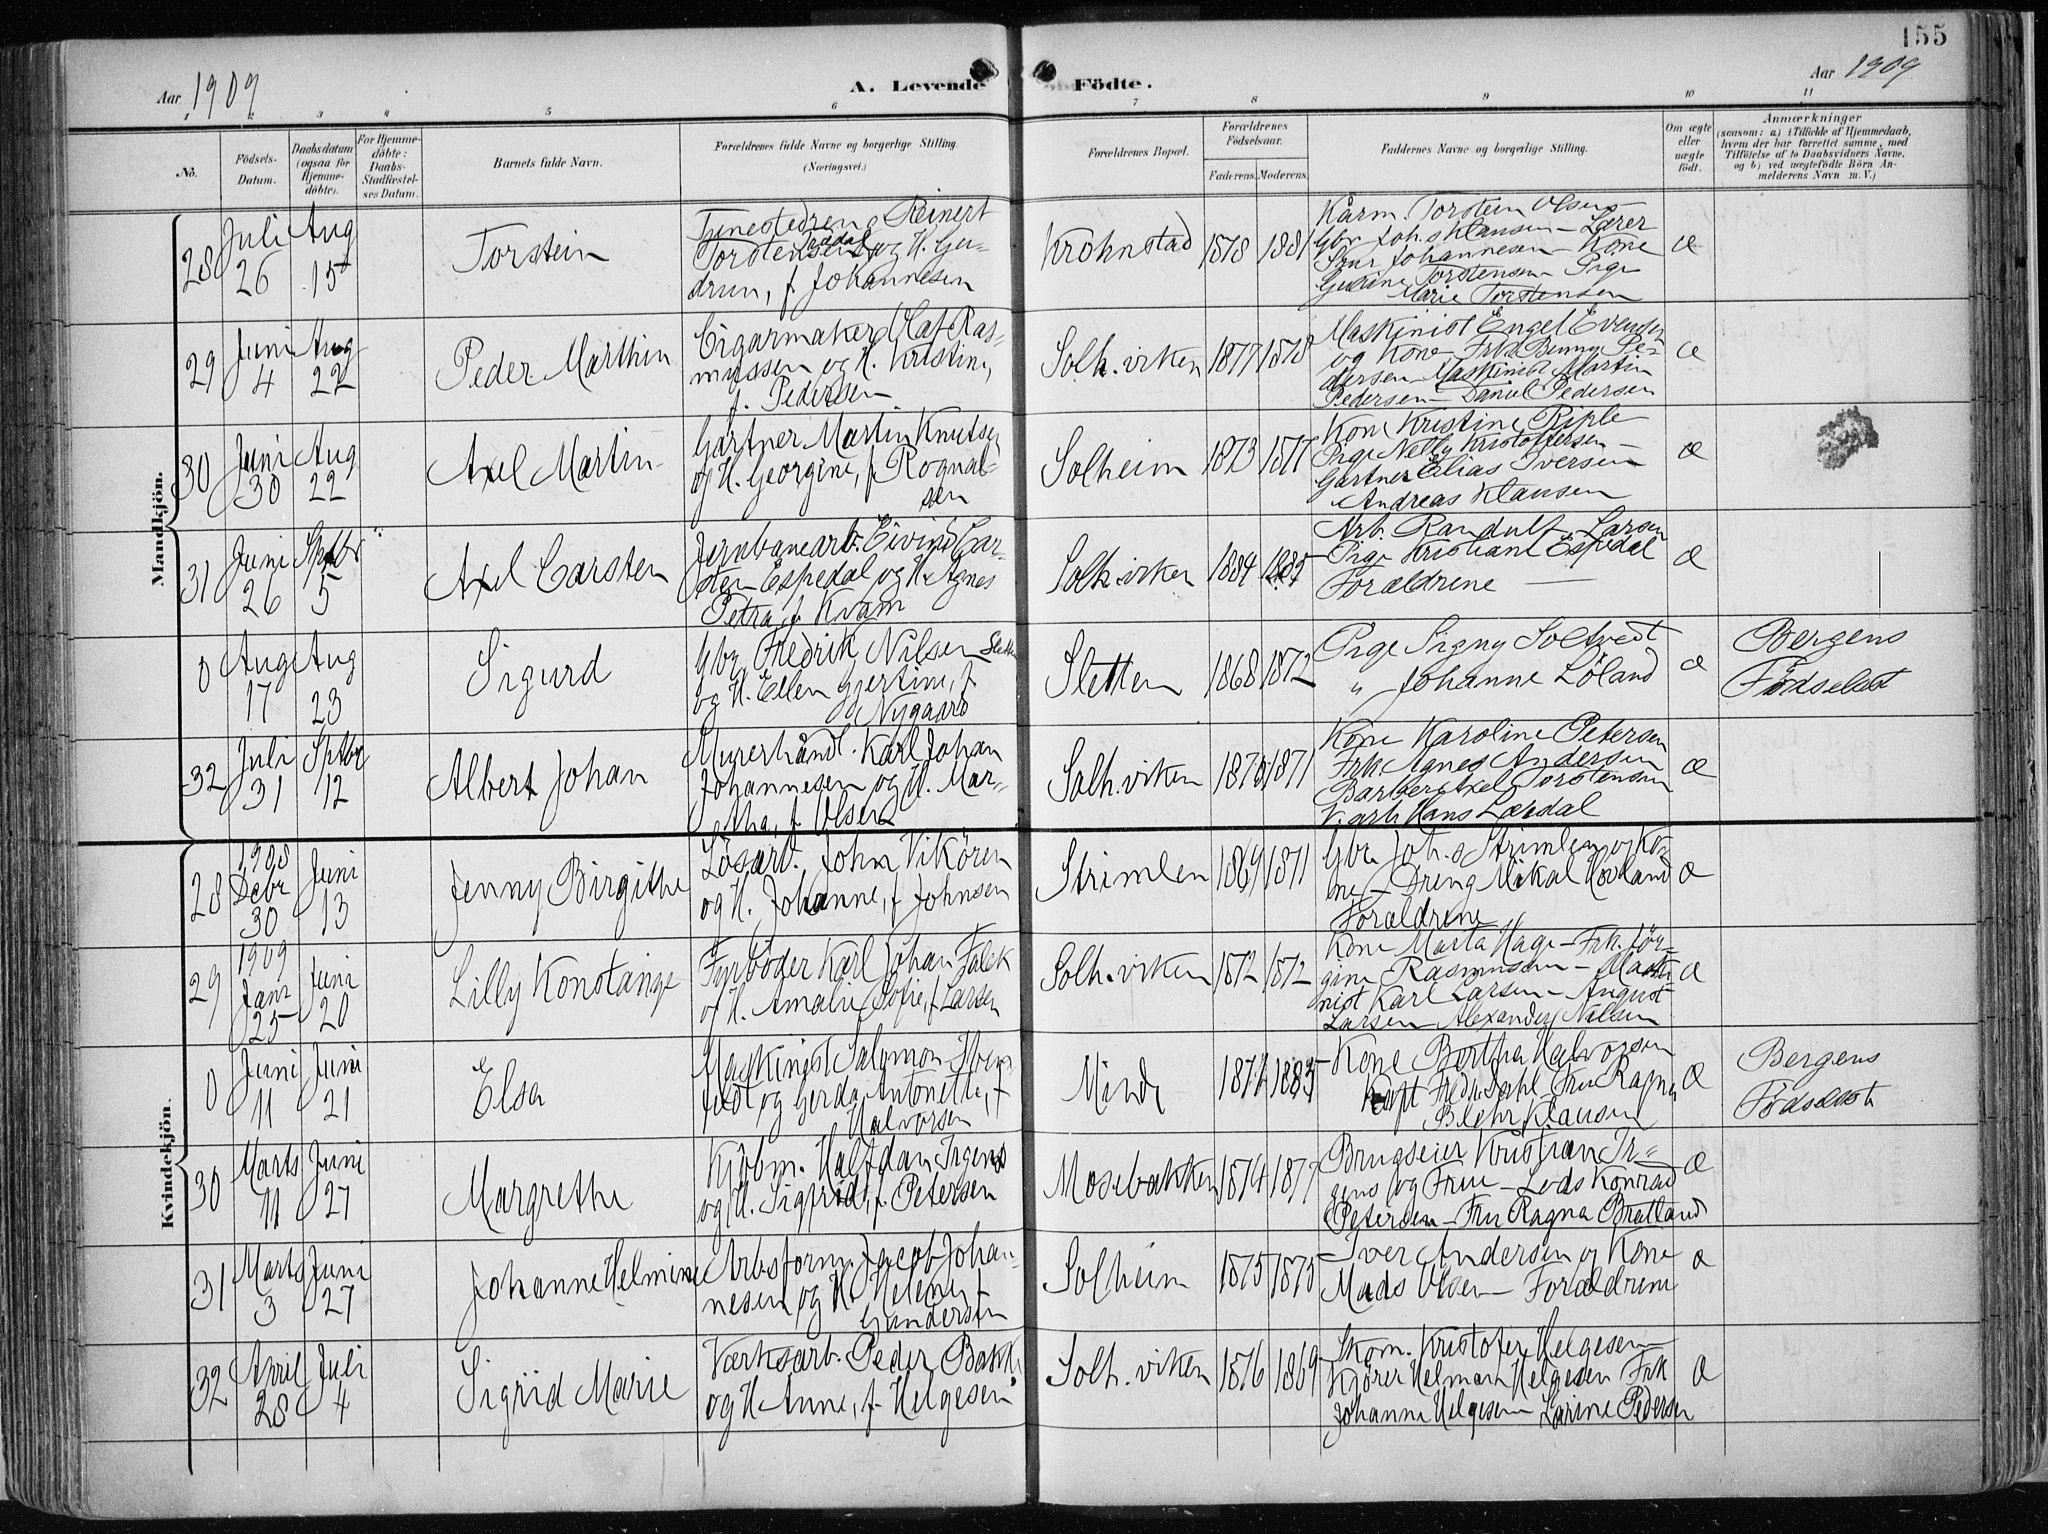 155
Aar 1909
A. Levende Födte.
Aar 1909
1 2 3 4 5 6 7 8 9 10 11
No.
Födsels-
Datum.
Daabsdatum
(ogsaa for
Hjemme-
döbte).
For Hjemme-
döbte:
Daabs-
Stadfæstel-
ses Datum.
Barnets fulde Navn.
Forældrenes fulde Navne og borgerlige Stilling.
(Næringsvei.)
Forældrenes Bopæl.
Forældrenes
Födselsaar.
Faderens. Moderens.
Faddernes Navne og borgerlige Stilling.
Om ægte
eller
uægte
födt.
Anmærkninger
(saasom: a) i Tilfælde af Hjemmedaab,
hvem der har forrettet samme, med
Tilföielse af to Daabsvidners Navne,
og b) ved uægtefödte Börn An-
melderens Navn m. V.)
Mandkjön.
28
Juli
26
Aug
15
Torstein
Reinert
Torstensen og H. Gu-
drun, f. Johannesen
Krohnstad
1878
1881
Karm. Torstein Olsen
Gbr. Johs Klausen - Lærer
Johannesen - Kone
Torstensen Pige
Marie Torstensen
æ
29
Juni
4
Aug
22
Peder Marthin
Cigarmaker Olaf Ras-
mussen og H. Kristine,
f. Pedersen
Solh.viken
1877
1878
Maskinist Engel Evensen
og Kone Frk. Pe-
dersen Maskinist Martin
Pedersen - Daniel Pedersen
æ
30
Juni
30
Aug
22
Axel Martin
Gartner Martin Knutsen
og H. Georgine, f. Rognal-
sen
Solheim
1873
1877
Kone Kristine Riple
Pige Nelly Kristoffersen -
Gartner Elias Iversen
Andreas Klausen
æ
31
Juni
26
Sptbr
5
Axel Carsten
Jernbanearb. Eivind Car-
sten Espedal og H. Agnes
Petra, f. Kvam
Solh.viken
1884
Arb. Randulf Larsen
Pige Kristiane Espedal
Forældrene
æ
0
Aug
17
Aug
23
Sigurd
Gbr. Fredrik Nilsen Sletten
og H. Ellen Gjertine, f.
Nygaard
Sletten
1868
1872
Pige Signy Soltvedt
" Johanne Löland
æ
Bergens
Födselsst
32
Juli
31
Sptbr
12
Albert Johan
Murerhåndl. Karl Johan
Johannesen og H. Mar-
tha, f. Olsen
Solh.viken
1870
1871
Kone Karoline Petersen
Frk. Agnes Andersen
Barber Axel Torstensen
Hans Lærdal
æ
Kvindekjön.
28
1908
Decbr
30
Juni
13
Jenny Birgithe
Lösarb. John Vikören
og H. Johanne, f. Johnsen
Strimlen
1869
1871
Gbr. Johs Strimlen og Ko-
ne - Dreng Mikal Hovland
Forældrene
æ
29
1909
Janr
25
Juni
20
Lilly Konstanse
Fyrböder Karl Johan Falck
og H. Amalie Sofie, f. Larsen
Solh.viken
1872
1872
Kone Marta Hage - Frk. Jör-
gine Rasmussen - Maski-
nist Karl Larsen - August
Larsen - Alexander Nilsen
æ
0
Juni
11
Juni
21
Elsa
Maskinist Salomon
og Gerda Antonette, f.
Halvorsen
Minde
1874
1883
Kone Bertha Halvorsen
Kapt Fredr. Dahl Fru Ragna
Blehr Klausen
æ
Bergens
Födselsst
30
Marts
11
Juni
27
Margrethe
Kjöbm. Halfdan Irgens
og H. Sigfrid, f. Petersen
Mosebakken
1874
1877
Brugseier Kristian Ir-
gens og Frue - Lods Konrad
Petersen - Fru Ragna Bratland
æ
31
Marts
3
Juni
27
Johanne Helmine
Arbsform. Jacob Johan-
nesen og H. Helene f.
Gundersen
Solheim
1875
1875
Iver Andersen og Kone
Mads Olsen - Forældrene
æ
32
April
28
Juli
4
Sigrid Marie
Værksarb. Peder Bakke
og H. Anne, f. Helgesen
Solh.viken
1876
1869
Skom. Kristofer Helgesen
Kjörer Helmar Helgesen Frk
Johanne Helgesen Larine Pedersen
æ